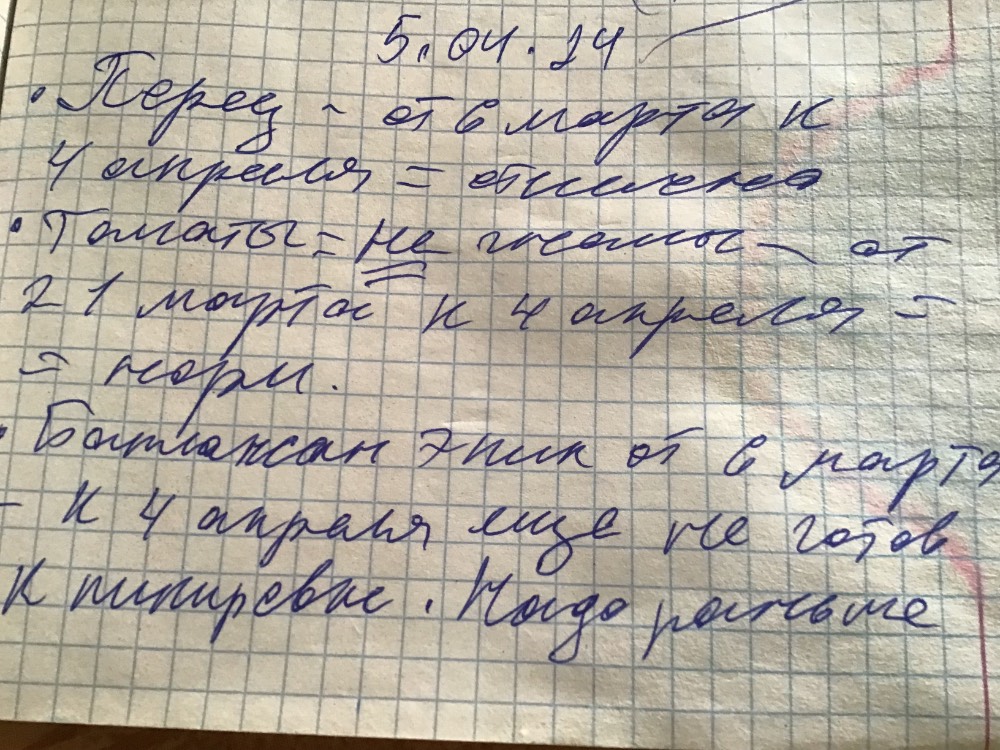 5.04.24
• Перец - от 6 марта к
4 апреля = отлично
• Томаты = не гномы - от
21 марта к 4 апреля =
= норм.
• Баклажан Эпик от 6 марта
- к 4 апреля еще не готов
к пикировке. Надо раньше